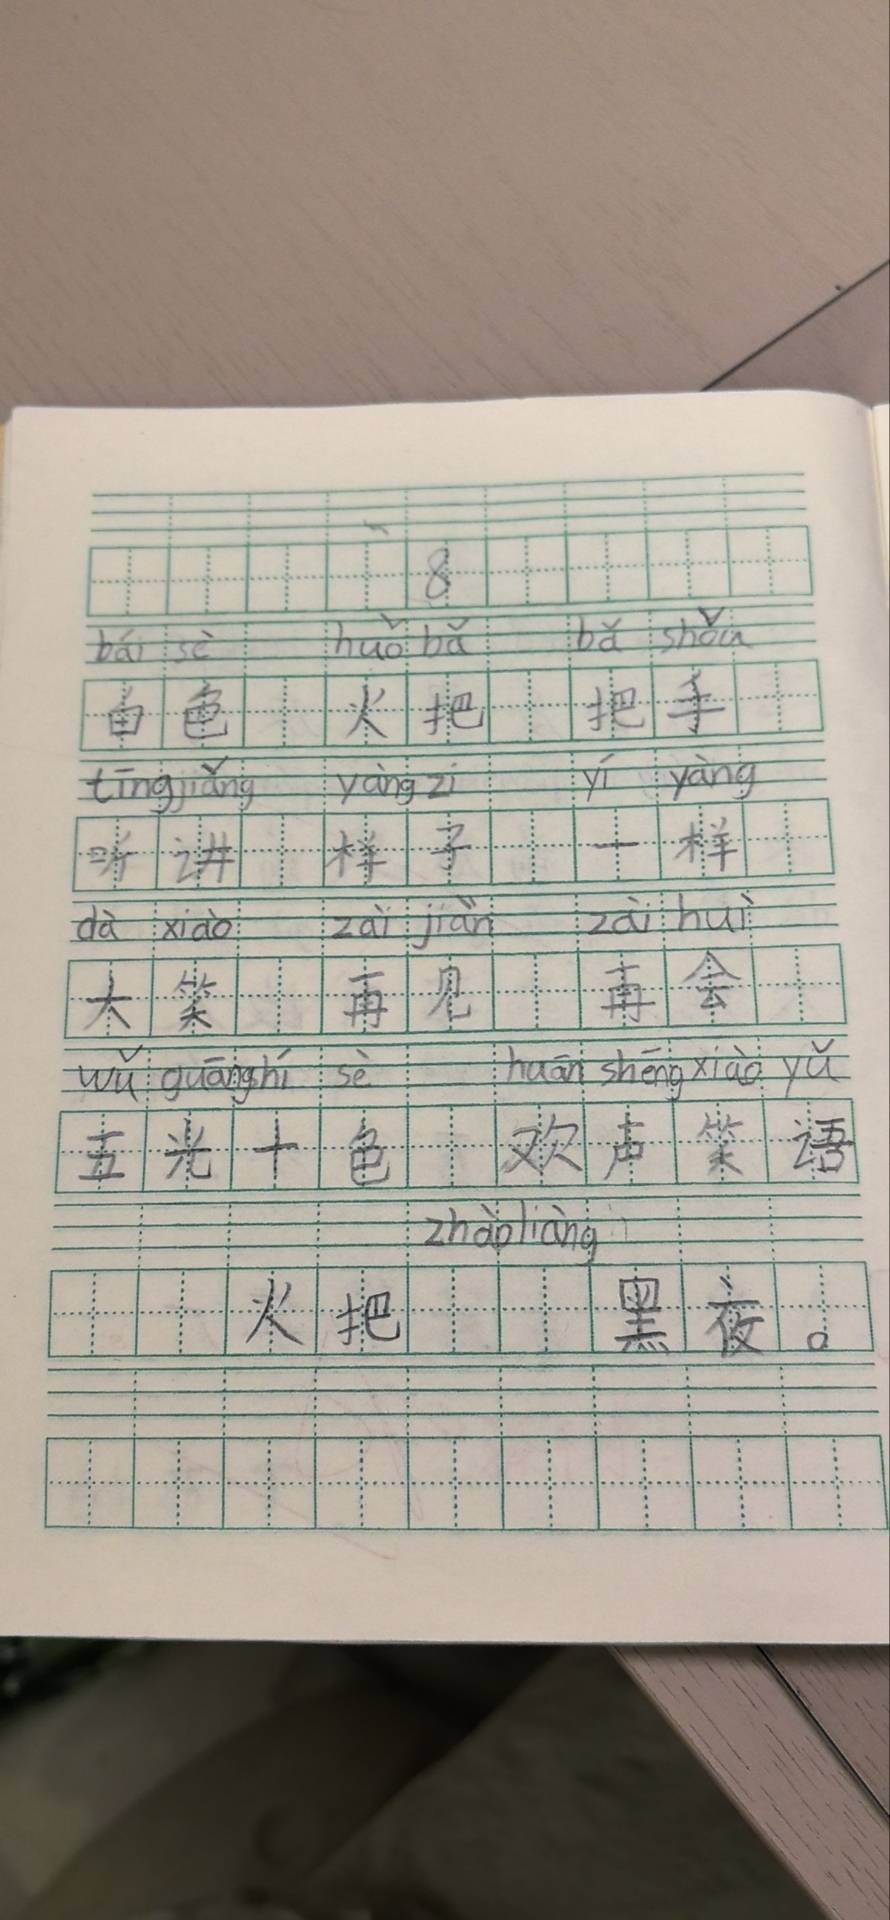 8
bái sè huǒ bǎ bǎ shǒu
白色 火把 把手
tīng jiǎng yàng zi yí yàng
听讲 样子 一样
dà xiào zài jiàn zài huì
大笑 再见 再会
wǔ guāng shí sè huān shēng xiào yǔ
五光十色 欢声笑语
zhào liàng
火把 黑夜。